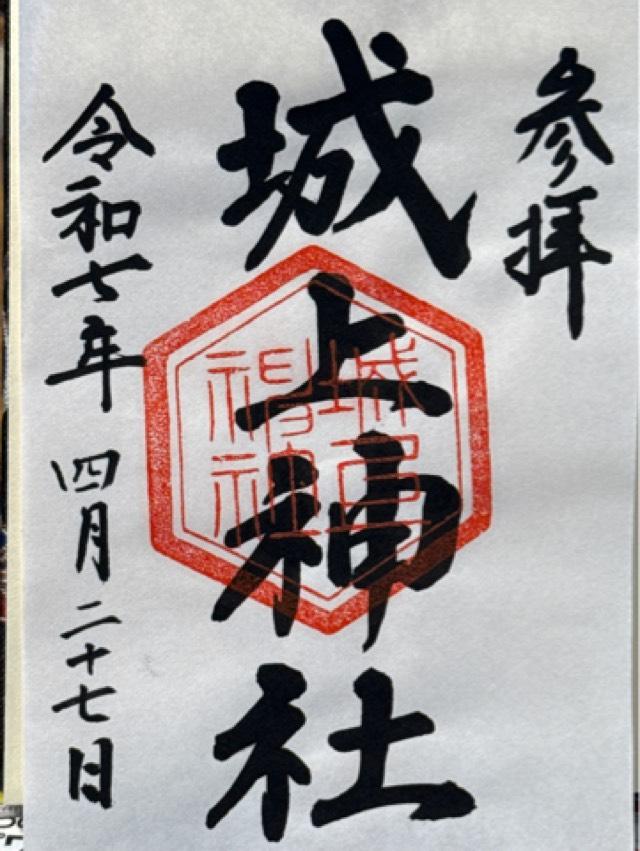 参拝
城上神社
令和七年 四月二十七日